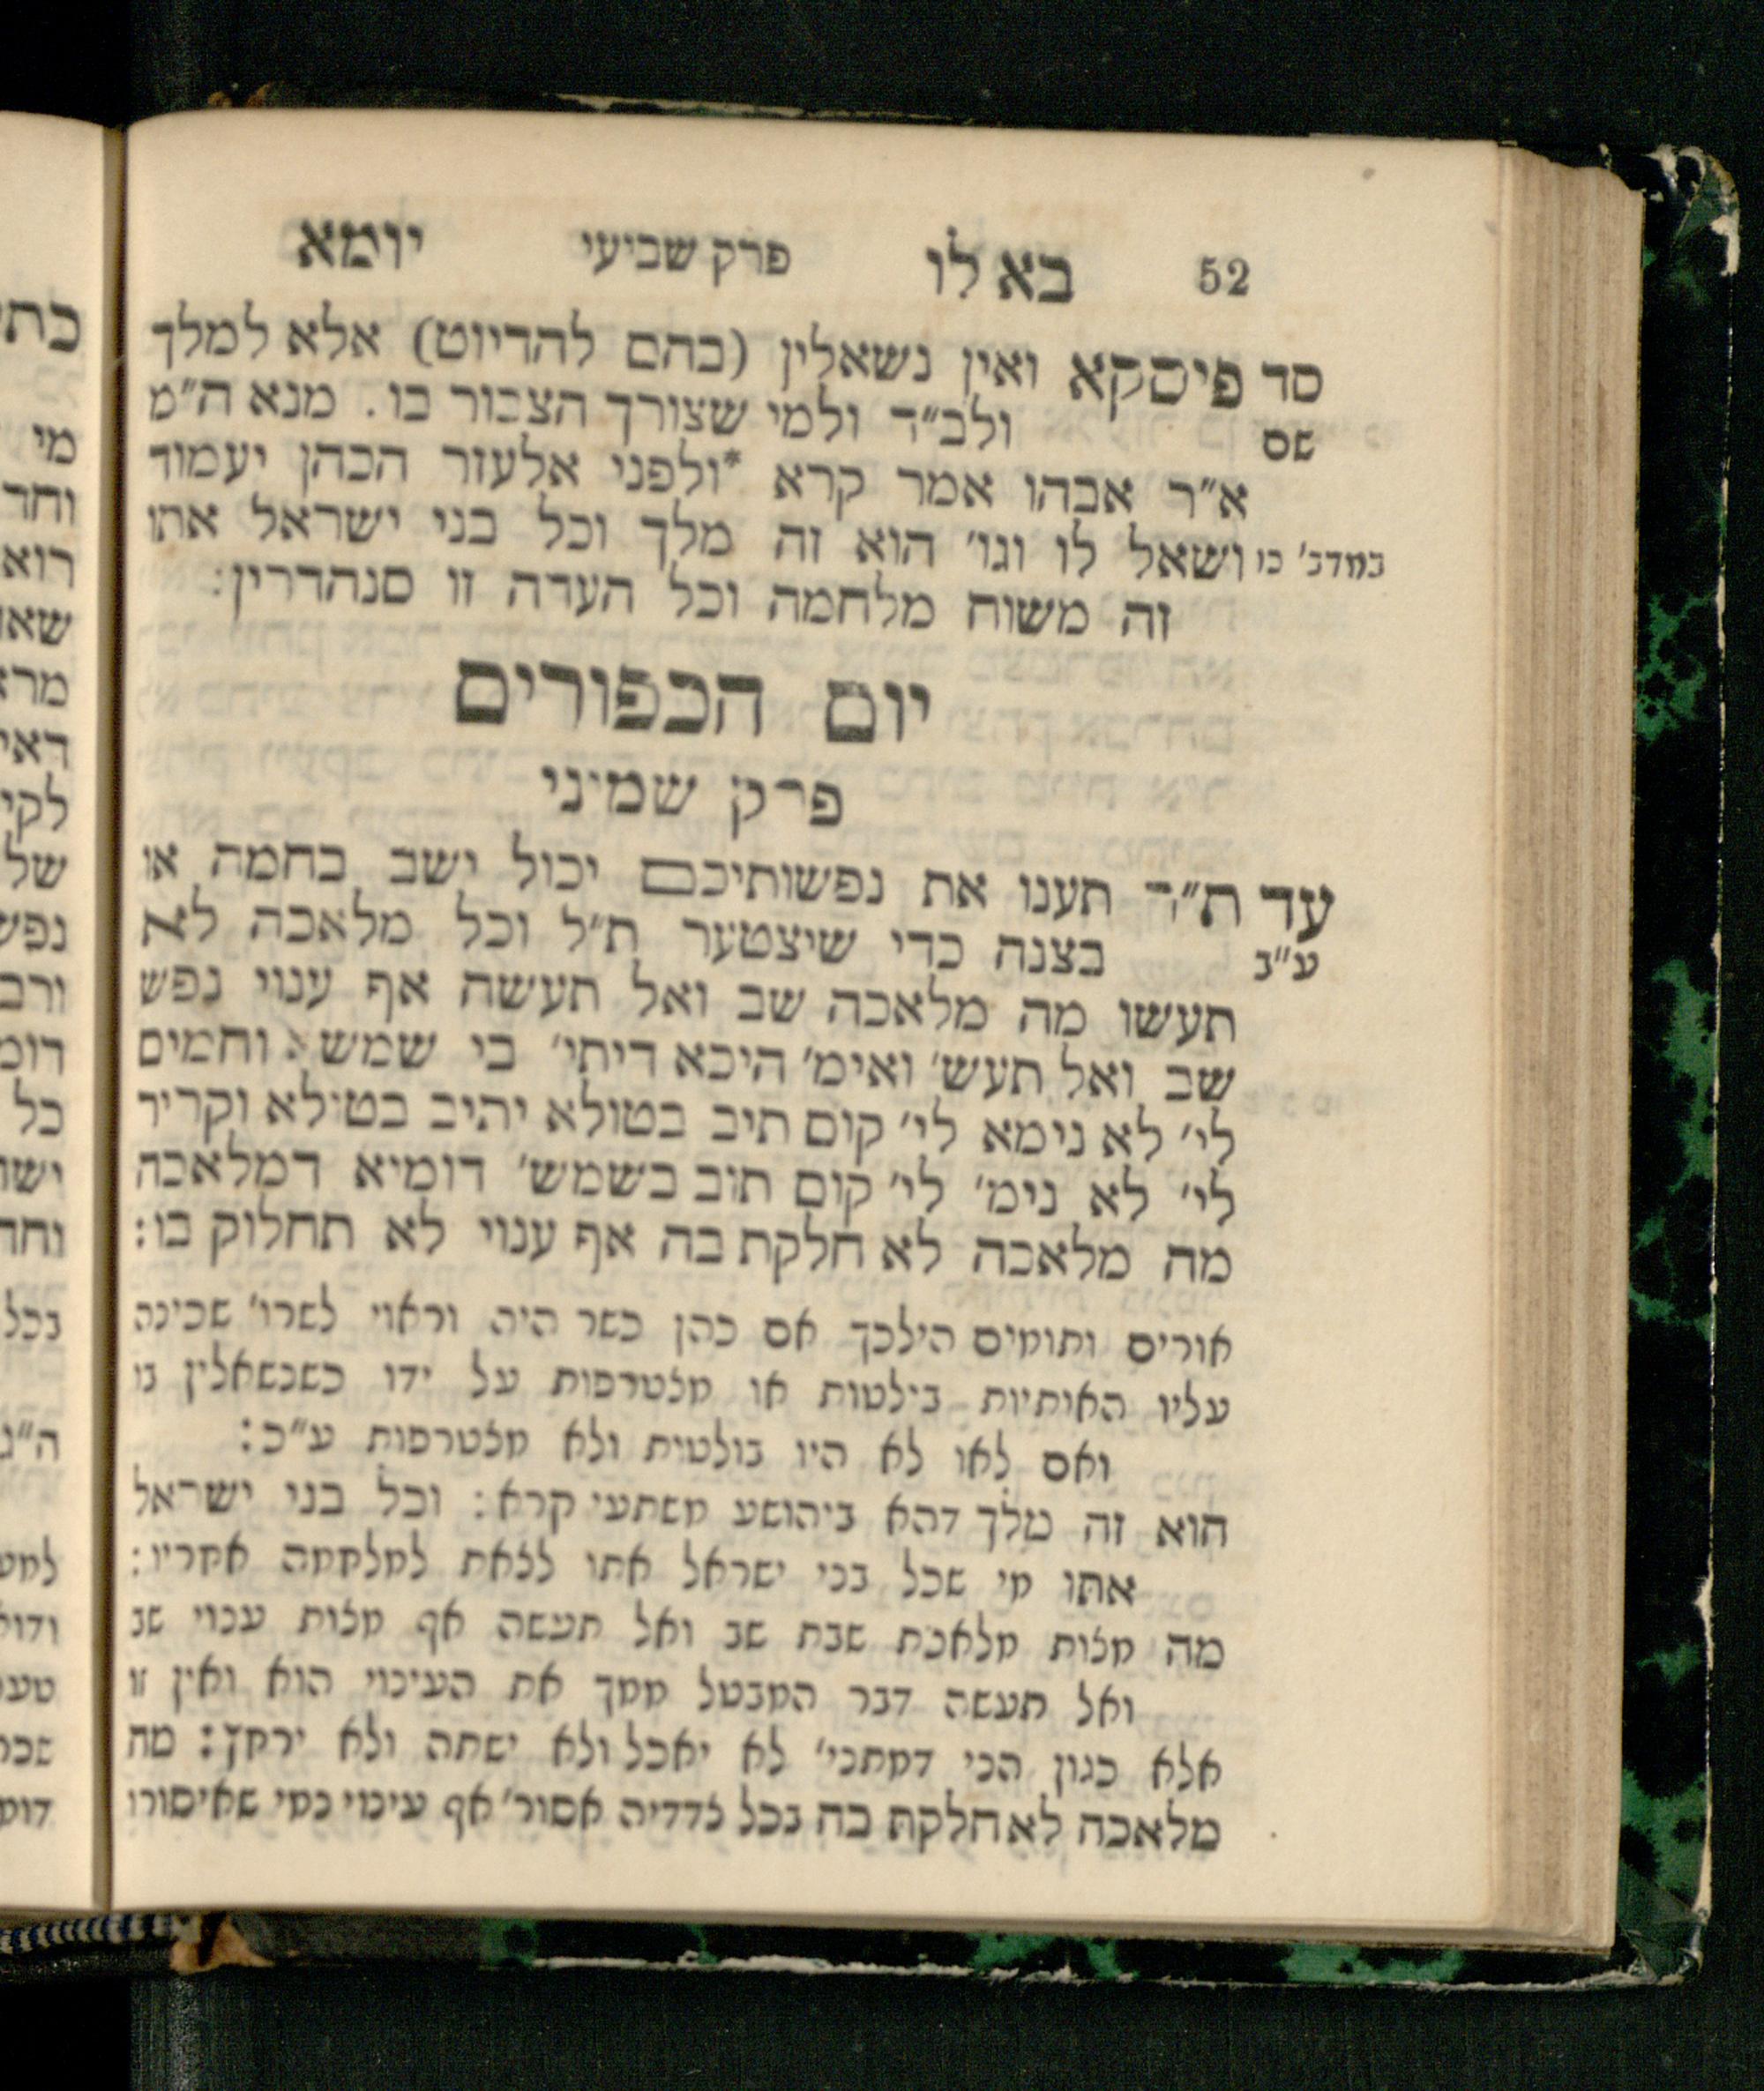 52 בא לו פרק שביעי יומא
סד פיסקא ואין נשאלין (בהם להדיוט) אלא למלך
שם ולב״ד ולמי שצורך הצבור בו. מנא ה״מ
א״ר אבהו אמר קרא *ולפני אלעזר הכהן יעמוד
במדב׳ כז ושאל לו וגו׳ הוא זה מלך וכל בני ישראל אתו
זה משוח מלחמה וכל העדה זו סנהדרין:
יום הכפורים
פרק שמיני
עד ת״ר תענו את נפשותיכם יכול ישב בחמה או
ע״ב בצנה כדי שיצטער ת״ל וכל מלאכה לא
תעשו מה מלאכה שב ואל תעשה אף ענוי נפש
שב ואל תעש׳ ואימ׳ היכא דיתי׳ בי שמשא וחמים
לי׳ לא נימא לי׳ קום תיב בטולא יהיב בטולא וקריר
לי׳ לא נימ׳ לי׳ קום תוב בשמש׳ דומיא דמלאכה
מה מלאכה לא חלקת בה אף ענוי לא תחלוק בו:
אורים ותומים הילכך אם כהן כשר היה וראוי לשרו׳ שכינה
עליו האותיות בולטות או מצטרפות על ידו כשנשאלין בו
ואם לאו לא היו בולטות ולא מצטרפות ע״כ:
הוא זה מלך דהא ביהושע משתעי קרא: וכל בני ישראל
אתו מי שכל בני ישראל אתו לצאת למלחמה אחריו:
מה מצות מלאכת שבת שב ואל תעשה אף מצות ענוי שב
ואל תעשה דבר המבטל ממך את העינוי הוא ואין זו
אלא כגון הכי דמתני׳ לא יאכל ולא ישתה ולא ירחץ: מה
מלאכה לא חלקת בה בכל צדדיה אסור׳ אף עינוי במי שאיסורו